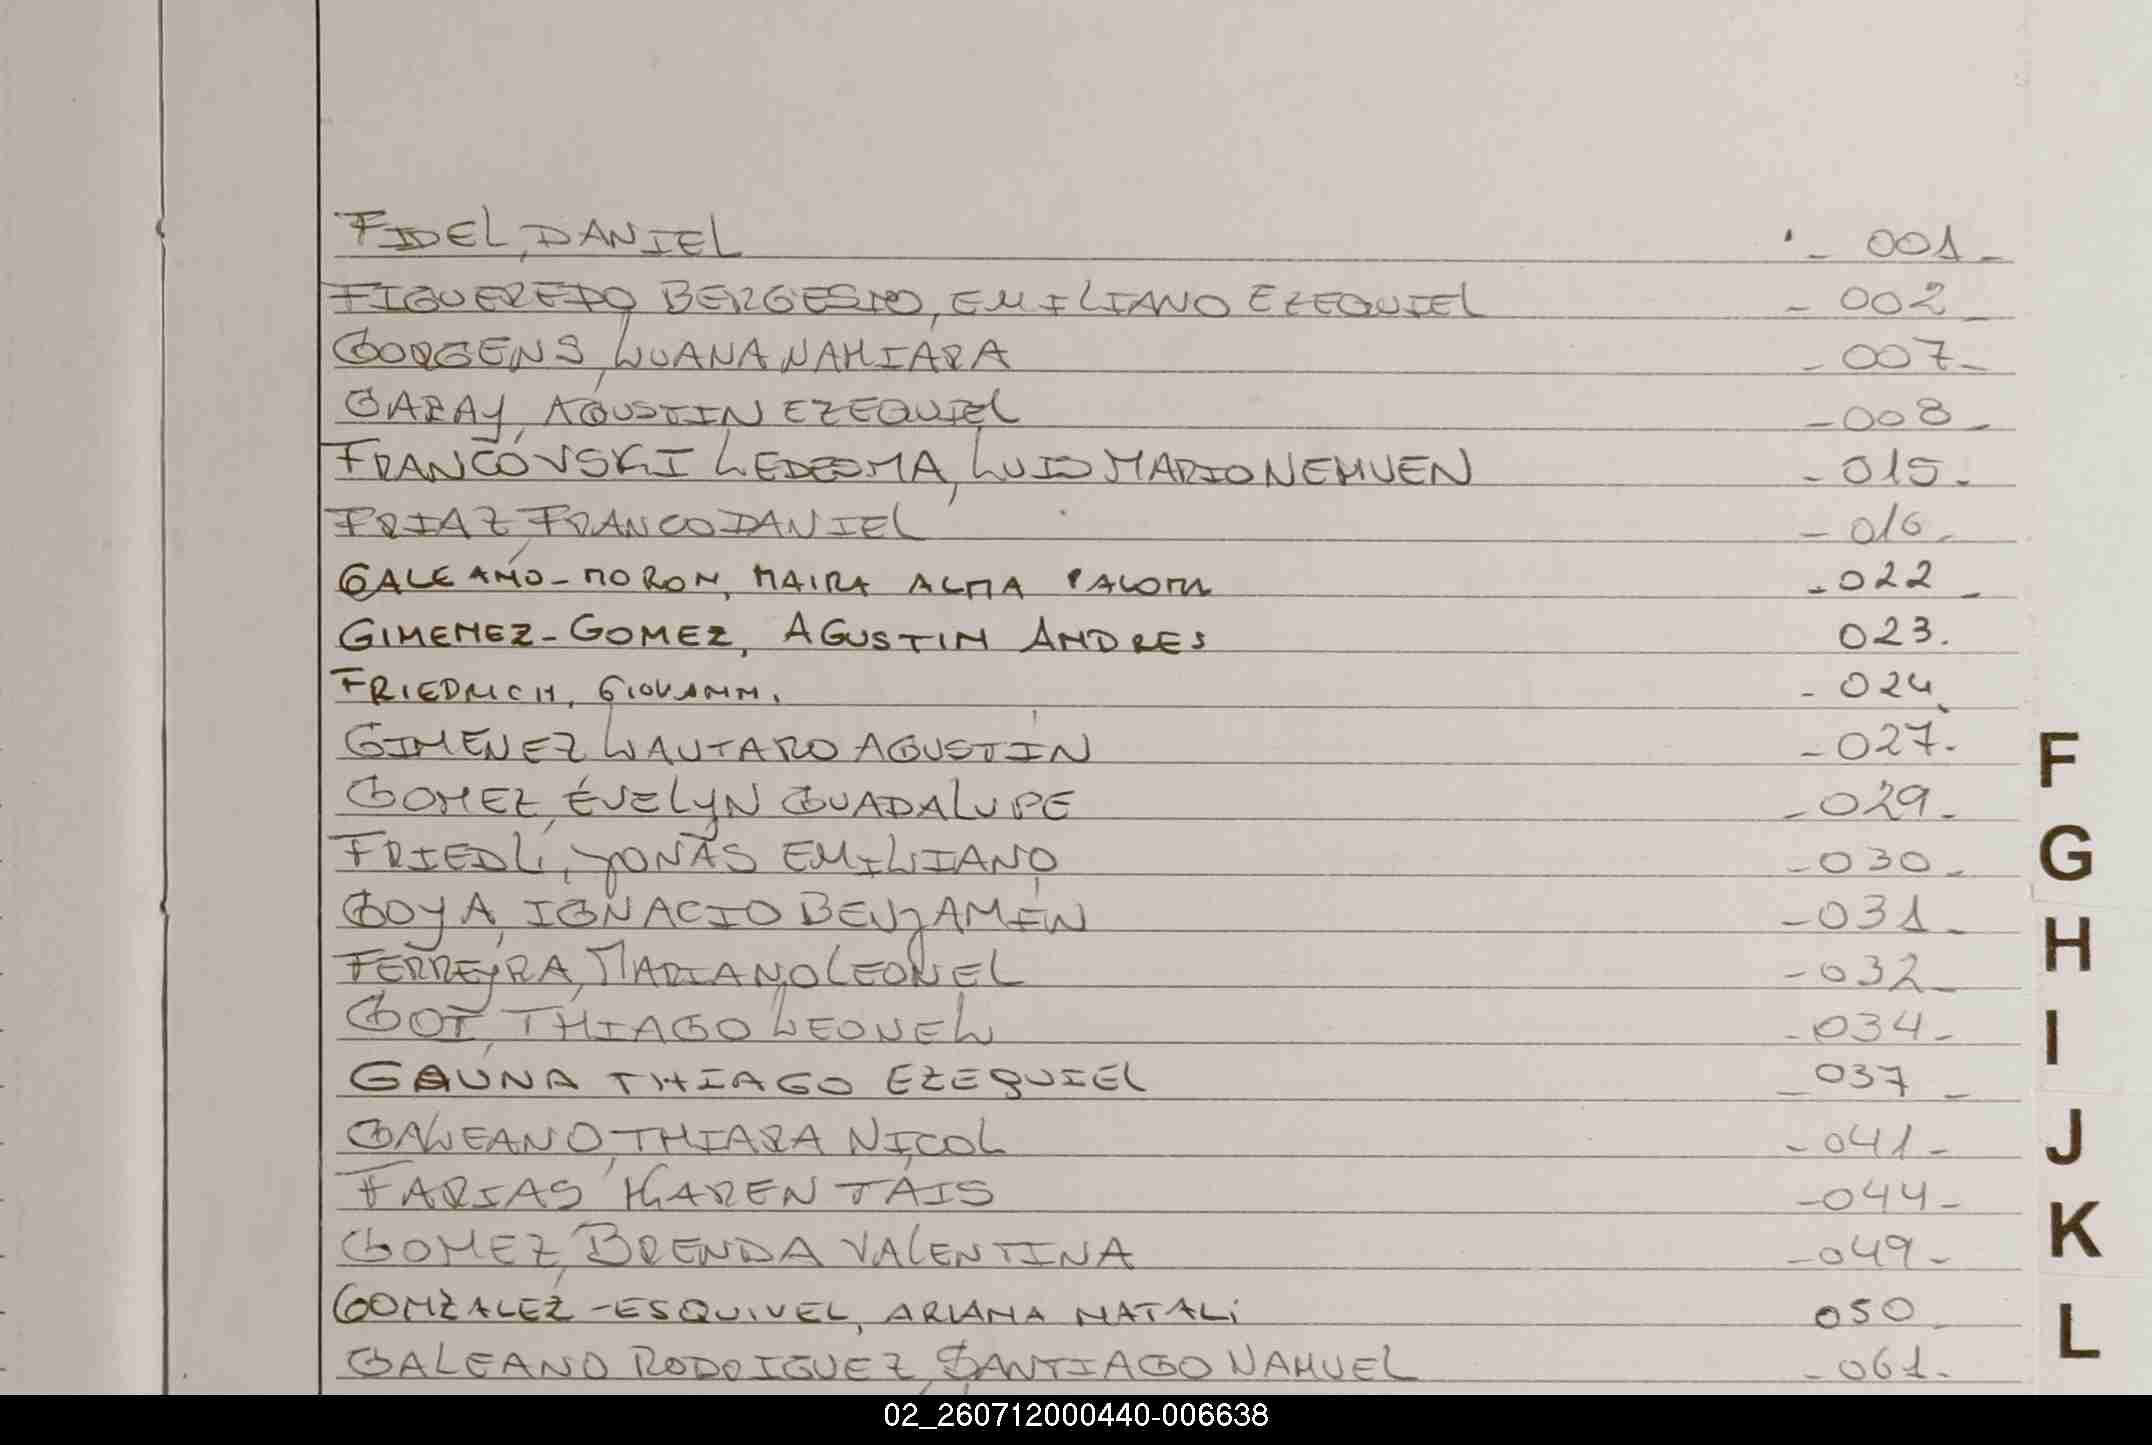 FIDEL, DANIEL - 001 -
FIGUEREDO BERGESIO, EMILIANO EZEQUIEL - 002 -
GORGENS, LUANA NAHIARA - 007 -
GARAY, AGUSTIN EZEQUIEL - 008 -
FRANCOVSKI LEDESMA, LUIS MARIO NEHUEN - 015 -
FRIAZ, FRANCO DANIEL - 016 -
GALEANO - MORON, MAIRA ALMA PALOMA - 022 -
GIMENEZ - GOMEZ, AGUSTIN ANDRES 023.
FRIEDRICH, GIOVANNI. - 024
F
GIMENEZ LAUTARO AGUSTÍN - 027 -
GOMEZ, EVELYN GUADALUPE - 029 -
G
FRIEDL, JONÁS EMILIANO - 030 -
GOYA, IGNACIO BENJAMÍN - 031 -
H
FERREYRA, MARIANO LEONEL - 032 -
GOT, THIAGO LEONEL - 034 -
I
GAUNA THIAGO EZEQUIEL - 037 -
GALEANO, THIARA NICOL - 041 -
J
FARIAS KAREN TAIS - 044 -
GOMEZ, BRENDA VALENTINA - 049 -
K
GONZALEZ - ESQUIVEL, ARIANA NATALI 050 -
L
GALEANO RODRIGUEZ, SANTIAGO NAHUEL - 061 -
02_260712000440-006638